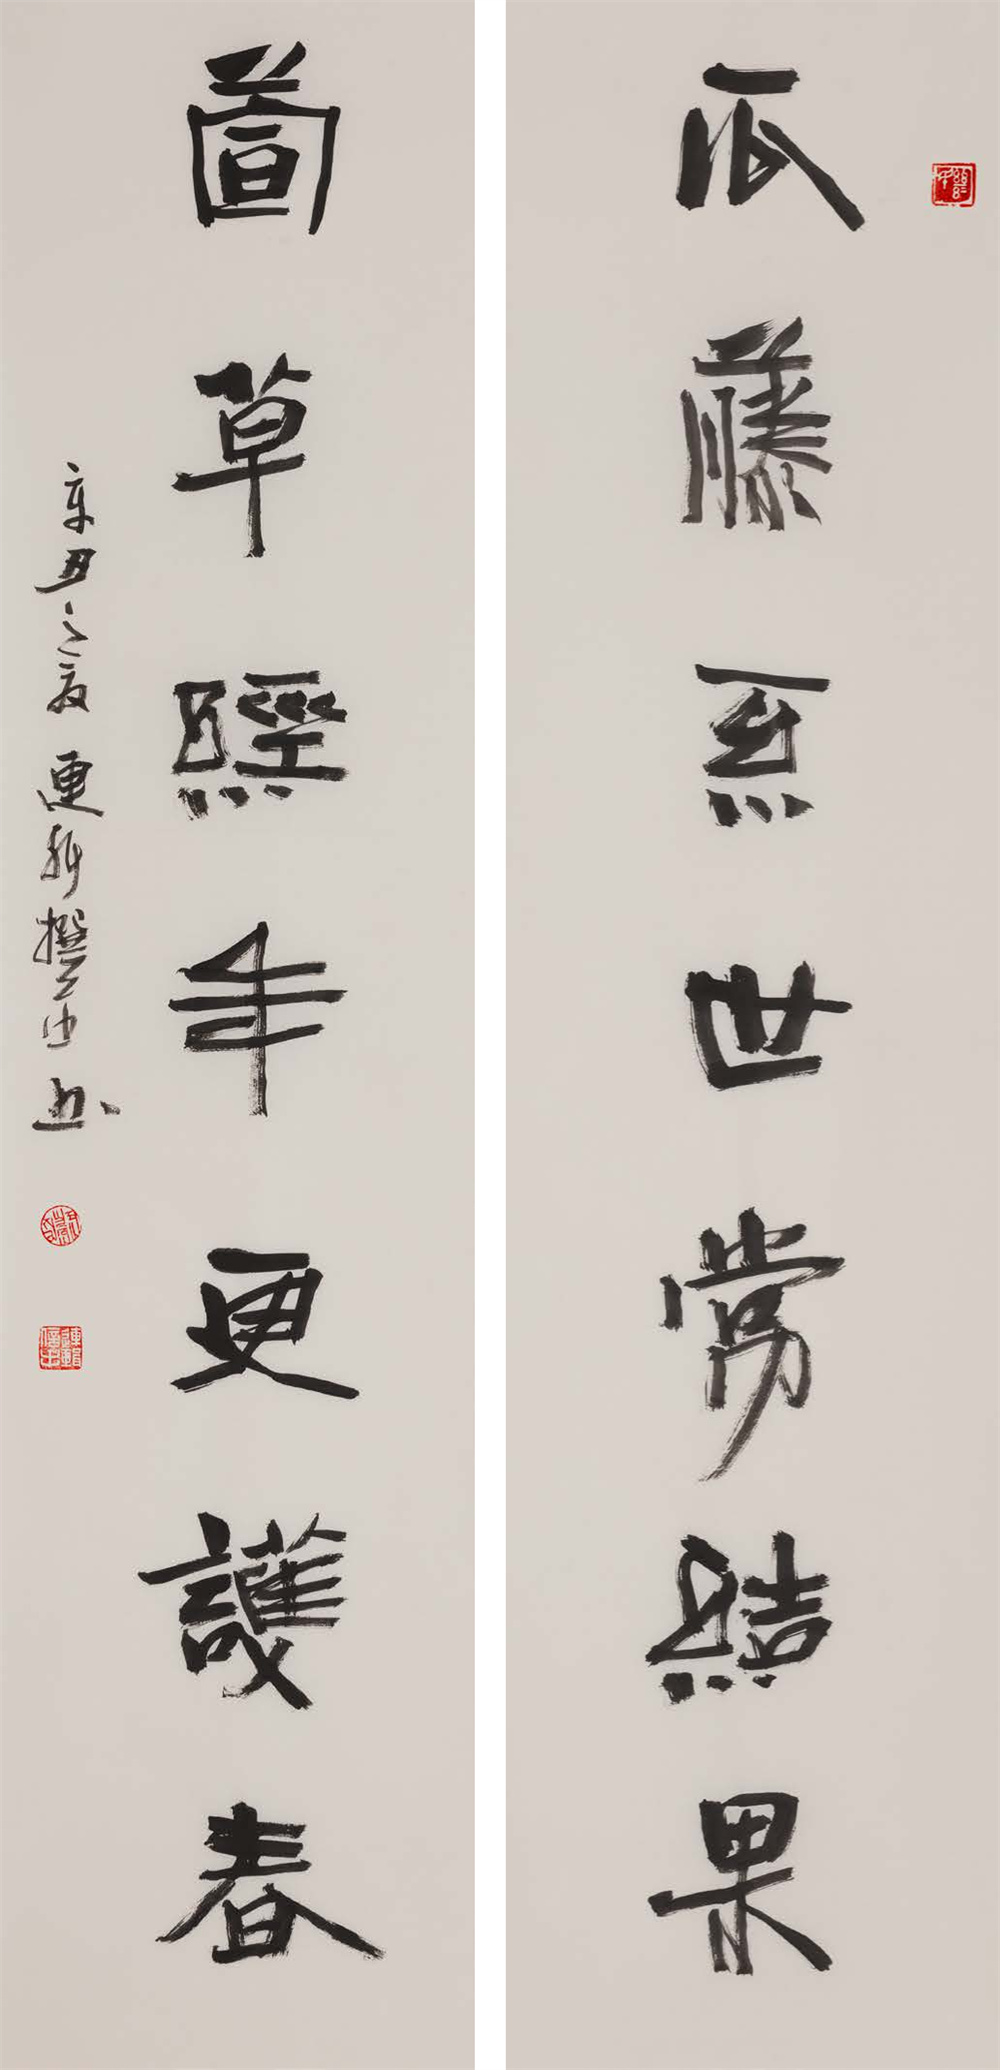 瓜藤系世常結果
萱草經年更護春
辛丑之夏 撰 書